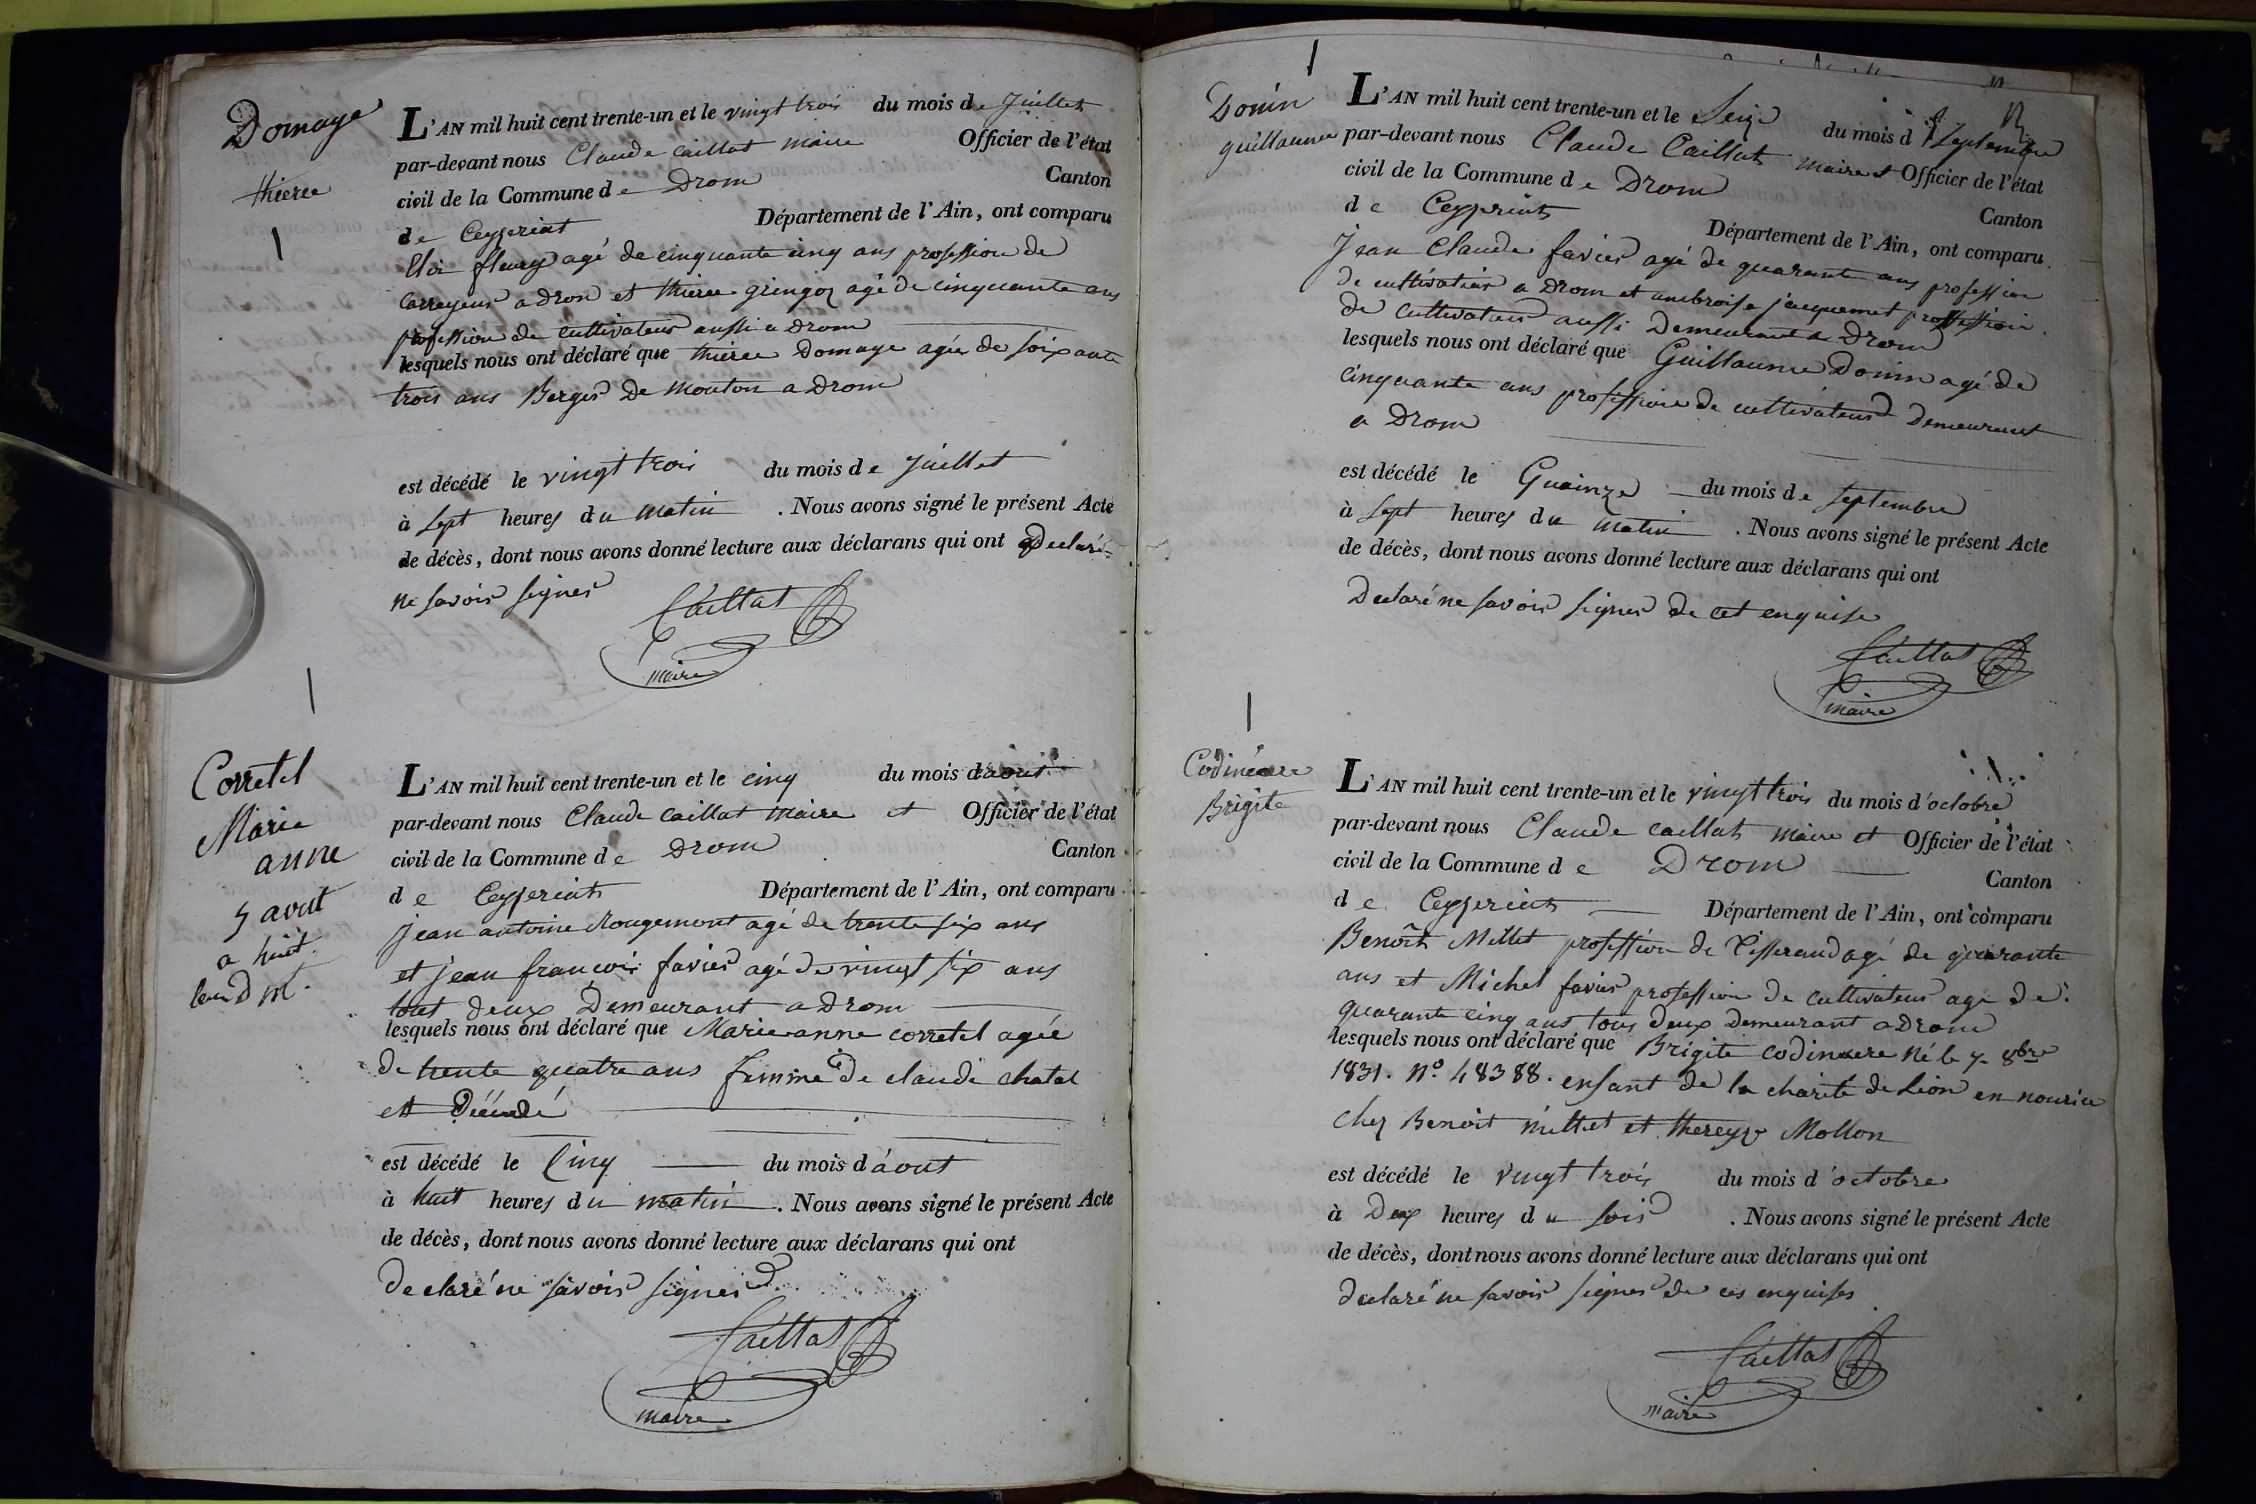 Domage
thierce
L'AN mil huit cent trente-un et le vingt trois du mois de Juillet
par-devant nous Claude Caillat maire Officier de l'état
civil de la Commune de Drom Canton
de Ceyzeriat Département de l'Ain, ont comparu
Eloi fleury agé de cinquante cinq ans profession de
a dron et thierce gringoz agé de cinquante ans
profession de cultivateur aussi a Drom
lesquels nous ont déclaré que thierce Domage agée de soixante
trois ans Berger De mouton a Drom
est décédé le vingt trois du mois de Juillet
à sept heures du matin . Nous avons signé le présent Acte
de décès, dont nous avons donné lecture aux déclarans qui ont Declaré
ne savoir signer
Caillat
maire
Corretel
Marie
anne
5 avut
a huit
L'AN mil huit cent trente-un et le cinq du mois daout
par-devant nous Claude Caillat maire et Officier de l'état
civil de la Commune de Drom Canton
de Ceyzeriat Département de l'Ain, ont comparu
jean antoine Rougemont agé de trente six ans
et jean francois favier agé de vingt six ans
tout deux Demeurant a Drom
lesquels nous ont déclaré que Marie anne corretel agée
de trente quatre ans femme De claude chatal
est Décédé
est décédé le Cinq du mois d'aout
à huit heures du matin . Nous avons signé le présent Acte
de décès, dont nous avons donné lecture aux déclarans qui ont
declaré ne savoir signer
Caillat
maire
Donin
guillaume
L'AN mil huit cent trente-un et le Seize du mois d Septembre
par-devant nous Claude Caillat maire et Officier de l'état
civil de la Commune de Drom Canton
de Ceyzeriat Département de l'Ain, ont comparu
Jean Claude favier agé de quarante ans profession
de cultivateur a Drom et ambroise jacquemet profession
de cultivateur aussi Demeurant a Drom
lesquels nous ont déclaré que Guillaume Donin agé de
cinquante ans profession de cultivateur Demeurant
a Drom
est décédé le Quainze du mois de septembre
à sept heures du matin . Nous avons signé le présent Acte
de décès, dont nous avons donné lecture aux déclarans qui ont
Declaré ne savoir signer de cet enquise
Caillat
maire
Brigite
L'AN mil huit cent trente-un et le vingt trois du mois d'octobre
par-devant nous Claude Caillat maire et Officier de l'état
civil de la Commune de Drom Canton
de Ceyzeriat Département de l'Ain, ont comparu
Benoît Millet profession de Tisserand agé de quarante
ans et Michel favier profession de cultivateur age de
quarante cinq ans tous deux Demeurant a Drom
lesquels nous ont déclaré que Brigite né le 7 8bre
1831. N° 48388. enfant de la charité de Lion en nourice
chez Benoit millet et thereze Mollon
est décédé le vingt trois du mois d'octobre
à Deux heures du soir . Nous avons signé le présent Acte
de décès, dont nous avons donné lecture aux déclarans qui ont
declaré ne savoir signer de ces enquises
Caillat
maire